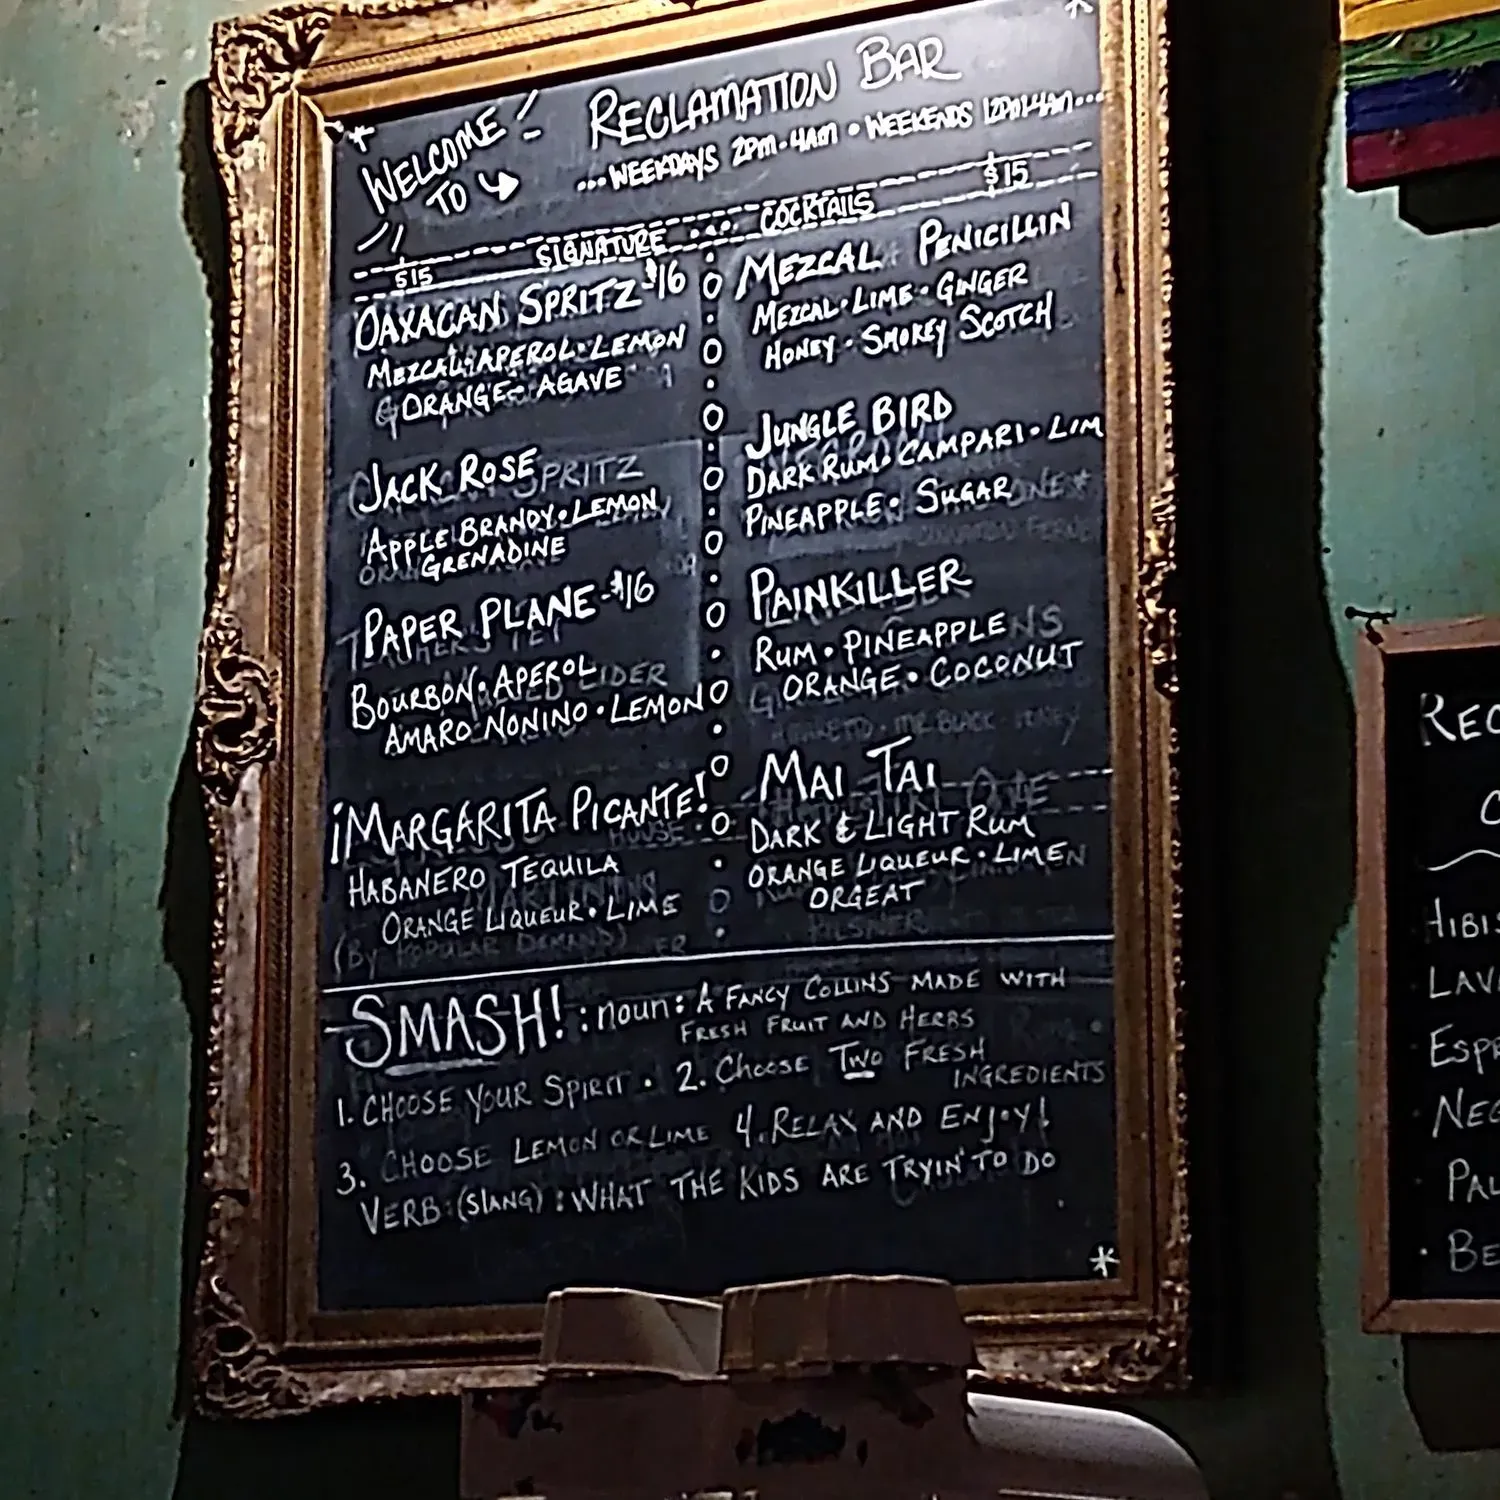 WELCOME TO RECLAMATION BAR
...WEEKDAYS 2PM-4AM • WEEKENDS 12PM-4AM...
$15 SIGNATURE COCKTAILS $15
OAXACAN SPRITZ-$16
MEZCAL•APEROL•LEMON
ORANGE•AGAVE
JACK ROSE
APPLE BRANDY•LEMON
GRENADINE
PAPER PLANE-$16
BOURBON•APEROL
AMARO NONINO•LEMON
¡MARGARITA PICANTE!
HABANERO TEQUILA
ORANGE LIQUEUR•LIME
(By Popular Demand)
MEZCAL PENICILLIN
MEZCAL•LIME•GINGER
HONEY•SMOKEY SCOTCH
JUNGLE BIRD
DARK RUM•CAMPARI•LIM
PINEAPPLE•SUGAR
PAINKILLER
RUM•PINEAPPLE
ORANGE•COCONUT
MAI TAI
DARK & LIGHT RUM
ORANGE LIQUEUR•LIME
ORGEAT
SMASH!: noun: A FANCY COLLINS MADE WITH
FRESH FRUIT AND HERBS
1. CHOOSE YOUR SPIRIT • 2. CHOOSE TWO FRESH
INGREDIENTS
3. CHOOSE LEMON OR LIME 4. RELAX AND ENJOY!
VERB:(SLANG): WHAT THE KIDS ARE TRYIN' TO DO
REC
C
HIBIS
LAV
ESPR
NEG
PAL
• BE